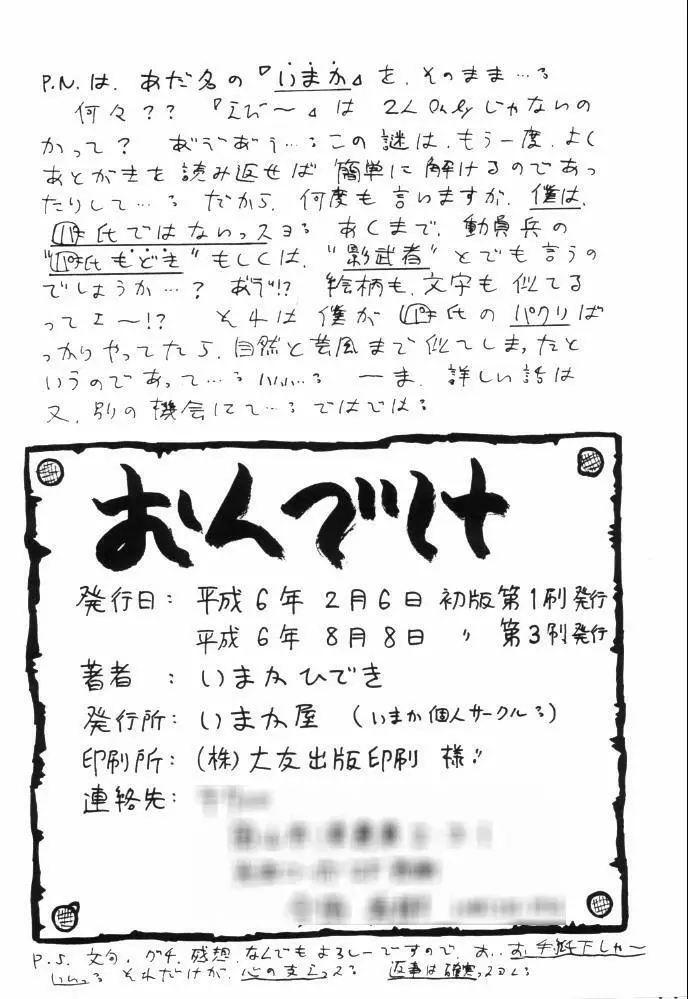 P.N.は、あだ名の『いまか』を、そのまま…。
何々??『えび〜』は2人Onlyじゃないの
かって? あうあう…。この謎は、もう一度、よく
あとがきを読み返せば簡単に解けるのであっ
たりして…。だから、何度も言いますが、僕は、
氏ではないっスヨ。あくまで、動員兵の
氏もどき"もしくは、"影武者"とでも言うの
でしょうか…? あう!? 絵柄も、文字も似てる
ってェ〜!? それは僕が 氏のパクリば
っかりやってたら、自然と芸風まで似てしまったと
いうのであって…。いいい…。ーま、詳しい話は
又、別の機会にて…。ではでは。
おんでけ
発行日: 平成6年 2月6日 初版第1刷発行
平成6年 8月8日 〃 第3刷発行
著者 : いまかひでき
発行所: いまか屋 (いまか個人サークル。)
印刷所: (株)大友出版印刷 様!!
連絡先:
P.S. 文句、グチ、感想、なんでもよろしーですので、お、お手紙下しゃ〜
いいっ。それだけが、心の支えっス。 返事は確実っスよ。